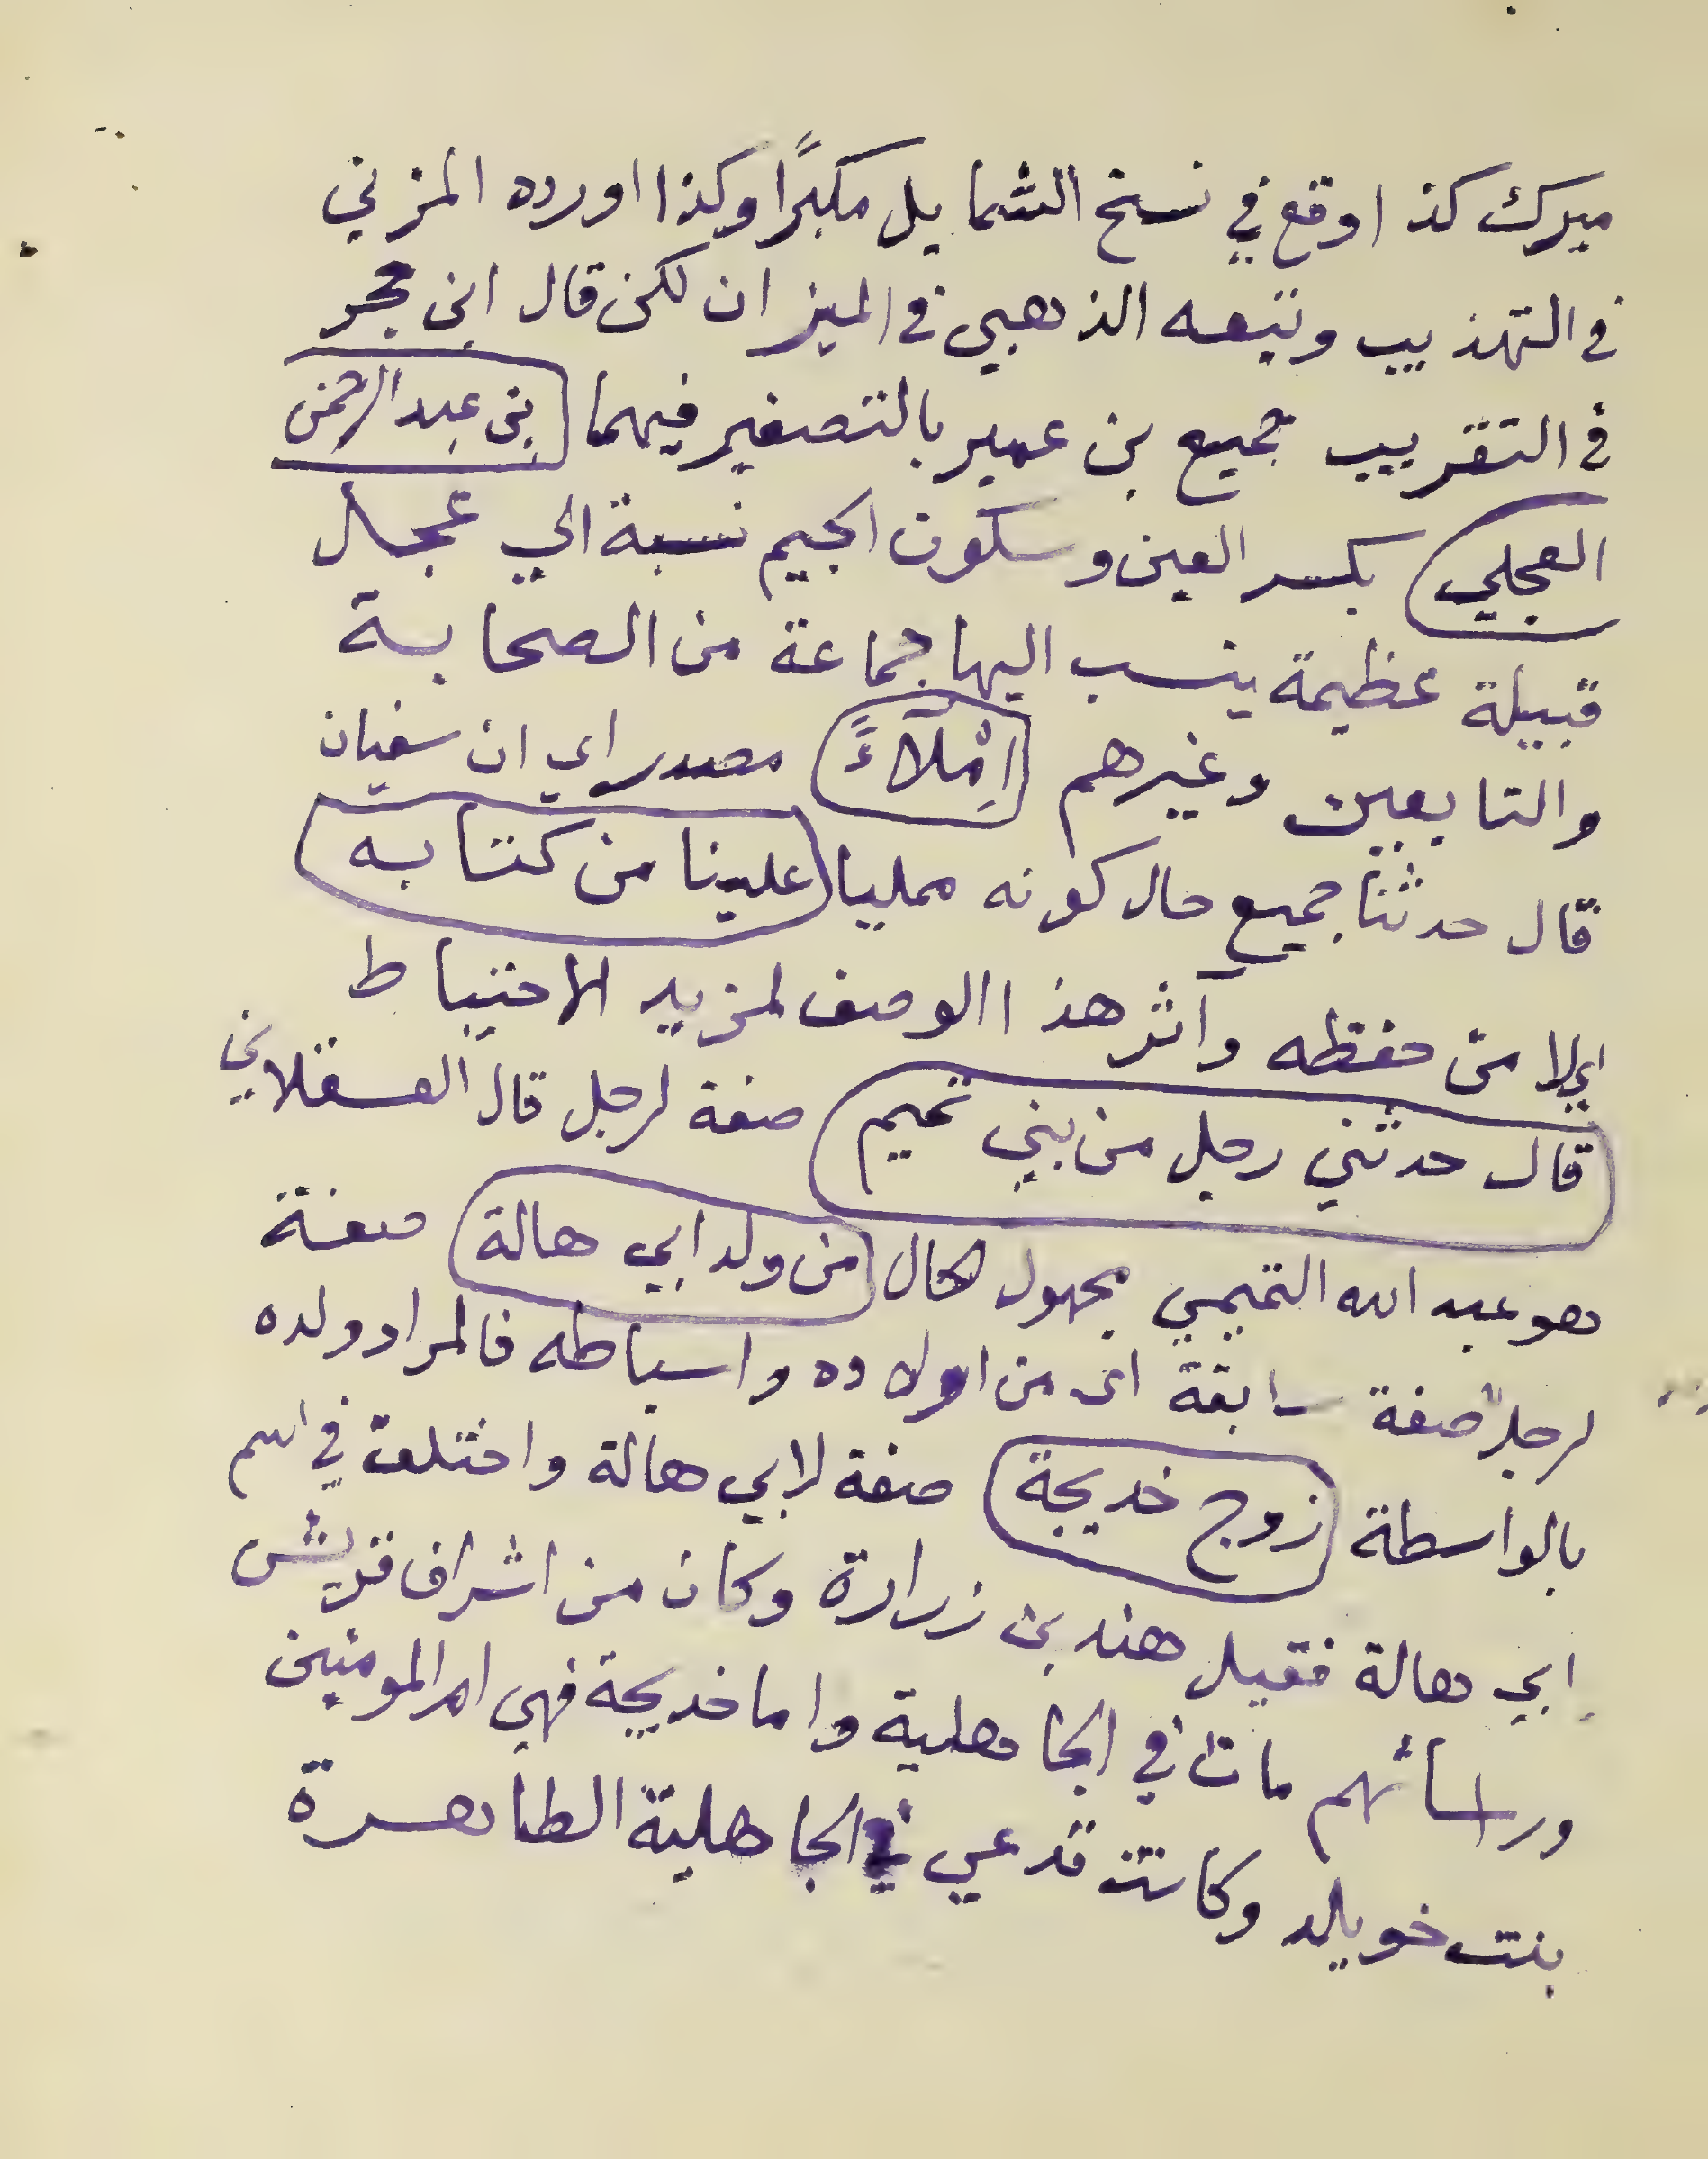 ميرك كذا وقع في نسخ الشمايل مكبرًا وكذا اورده المزني
في التهذيب وتبعه الذهبي في الميزان لكن قال ابن حجر
في التقريب جميع بن عمير بالتصغير فيهما بن عبد الرحمن
العجلي بكسر العين وسكون الجيم نسبة الي عجل
قبيلة عظيمة ينسب اليها جماعة من الصحابة
والتابعين وغيرهم اِمْلَآءً مصدر اي ان سفيان
قال حدثنا جميع حال كونه ممليا علينا من كتابه
اي لا من حفظه وآثر هذا الوصف لمزيد الاحتياط
قال حدثني رجل من بني تميم صفة لرجل قال العسقلاني
هو عبد الله التميمي مجهول الحال من ولد ابي هالة صفة
لرجل صفة سابقة اى من اولاده واسباطه فالمراد ولده
بالواسطة زوج خديجة صفة لابي هالة واختلف في اسم
ابي هالة فقيل هند بن زرارة وكان من اشراف قريش
ورسائهم مات في الجاهلية واما خديجة فهي ام المومنين
بنت خويلد وكانت تدعي في الجاهلية الطاهرة